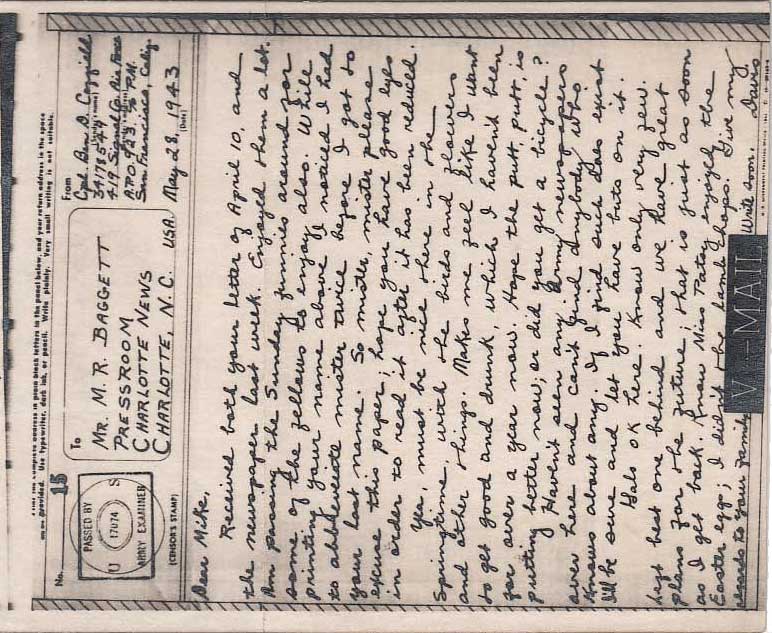 the complete address in plain black letters in the panel below, and your return address in the space
provided. Use typewriter, dark ink, or pencil. Write plainly. Very small writing is not suitable.
No. 15
PASSED BY
U S
17074
ARMY EXAMINER
(CENSOR'S STAMP)
To
MR. M. R. BAGGETT
PRESSROOM
CHARLOTTE NEWS
CHARLOTTE, N.C. USA
From
Cpl. Ben D.
34178544
419 Signal Co. Air Force
APO 923, % P.M.
San Francisco, Calif.
May 28, 1943
(Date)
Dear Mike,
Received both your letter of April 10, and
the newspaper last week. Enjoyed them a lot.
Am passing the Sunday funnies around for
some of the fellows to enjoy also. While
printing your name above I noticed I had
to abbreviate mister twice before I got to
your last name. So mister, mister please
excuse this paper; hope you have good eyes
in order to read it after it has been reduced.
Yea, must be nice there in the
Springtime with the buds and flowers
and other things. Makes me feel like I want
to get good and drunk, which I haven't been
for over a year now. Hope the putt, putt, is
putting better now, or did you get a bicycle?
Haven't seen any Army newspapers
over here and can't find anybody who
Knows about any. If I find such does exist
I'll be sure and let you have buts on it.
Gals ok here. Know only very few.
best one behind and we have great
plans for the future; that is just as soon
as I get back. Know Miss Patsy enjoyed the
Easter eggs; I didn't the lamb chops. Give my
regards to your family. Write soon. Davis
V···—MAIL